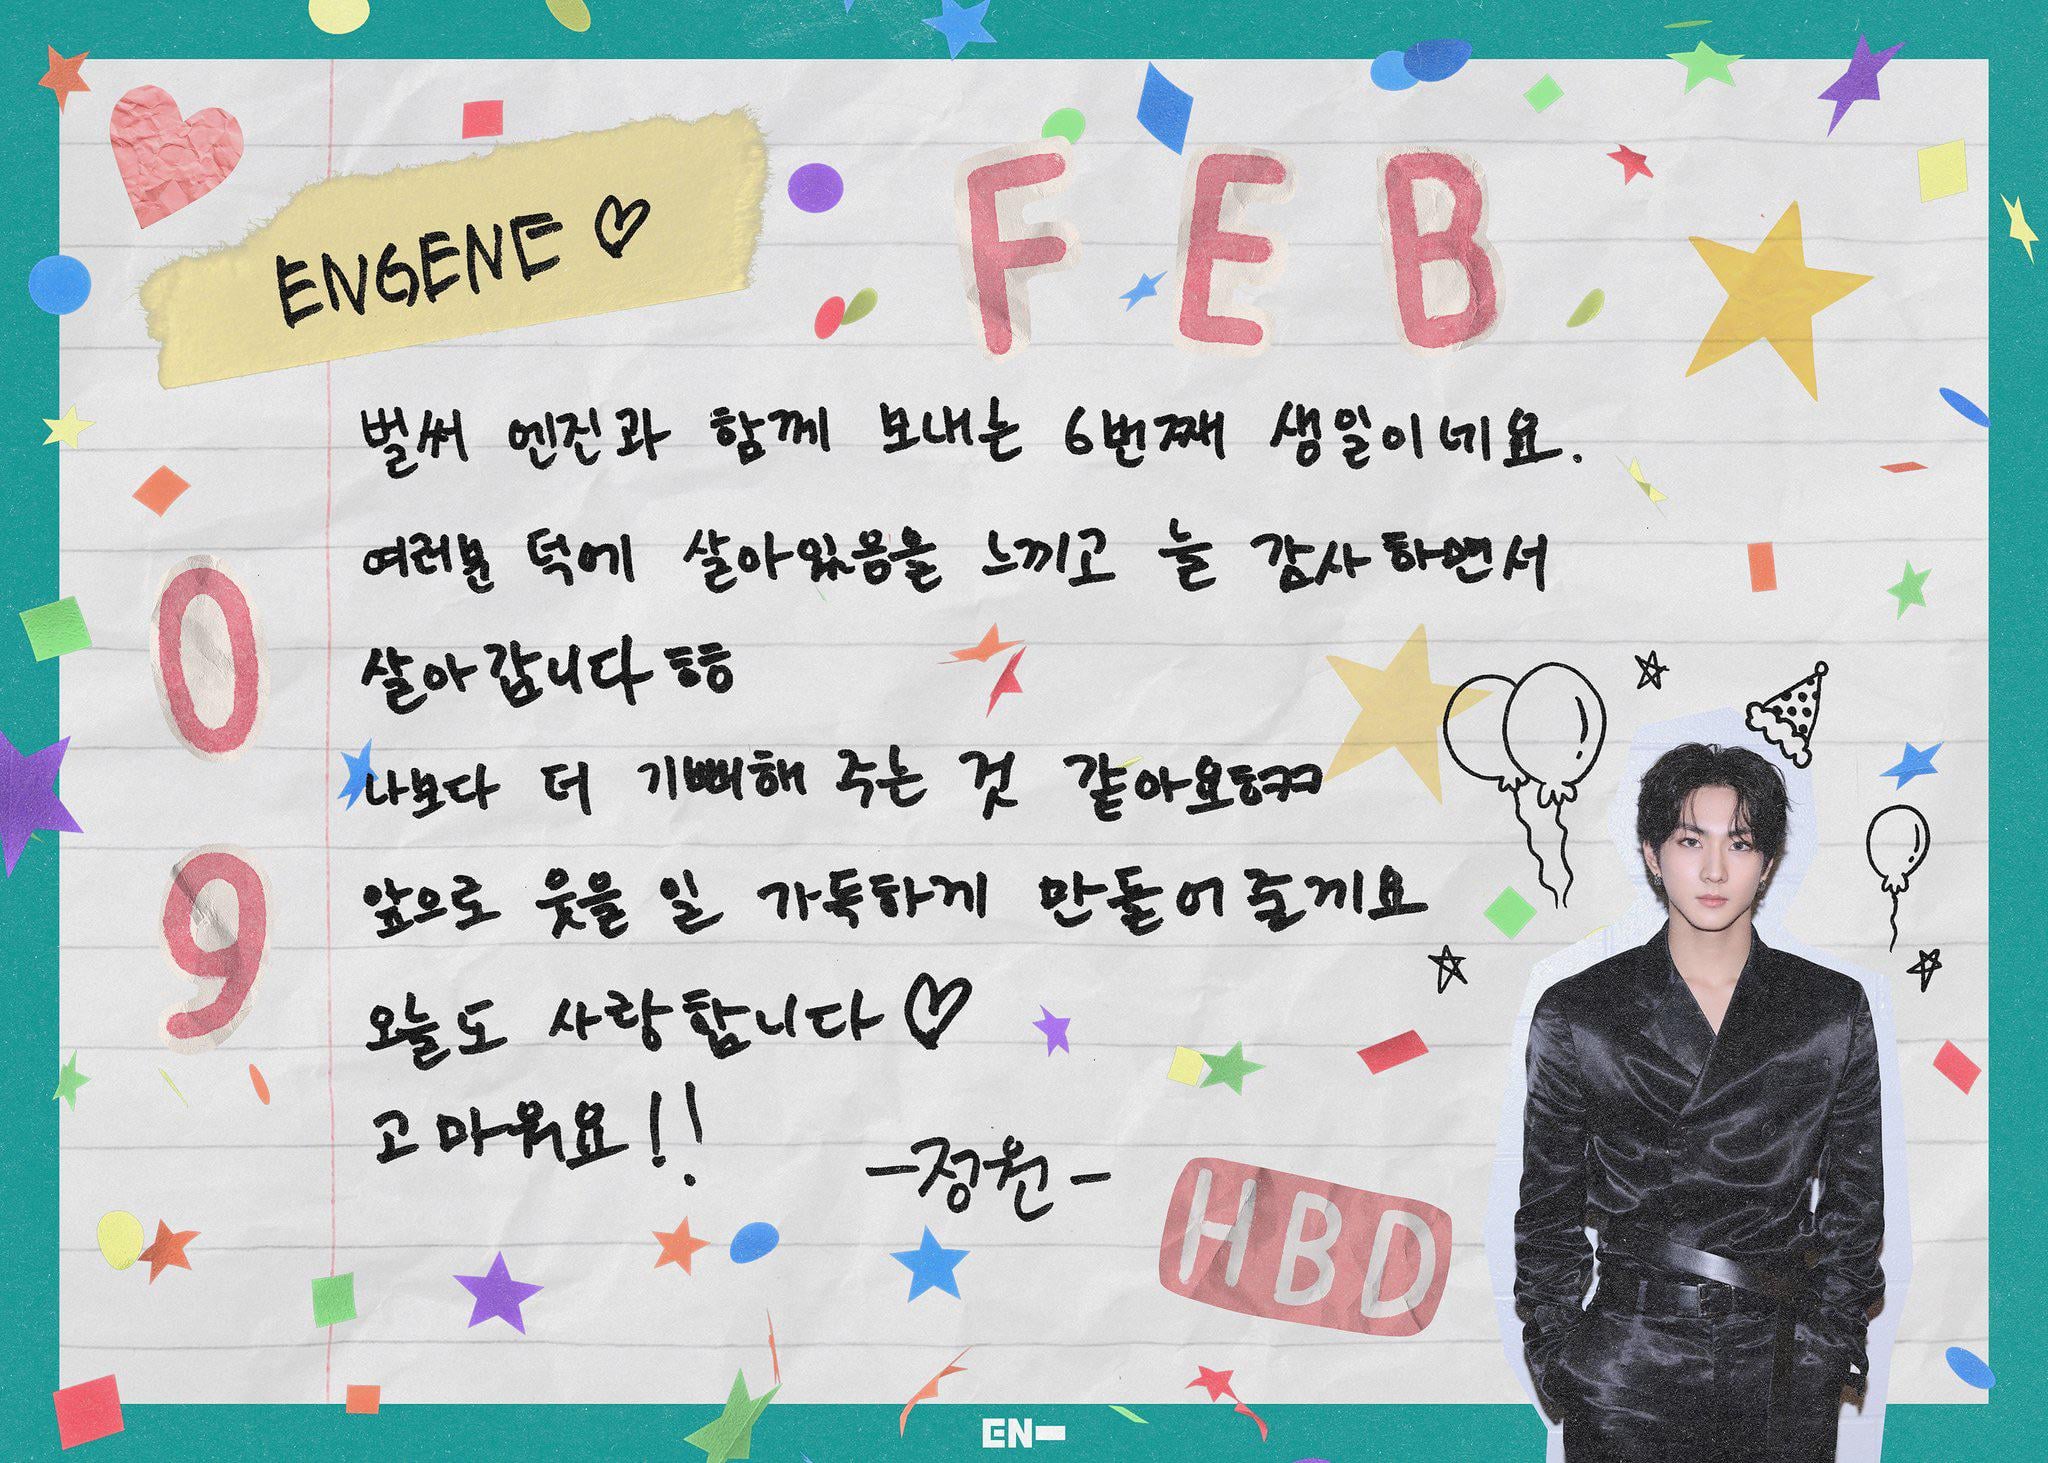 ENGENE ♡
FEB
09
벌써 엔진과 함께 보내는 6번째 생일이네요.
여러분 덕에 살아있음을 느끼고 늘 감사하면서
살아갑니다 ㅎㅎ
나보다 더 기뻐해 주는 것 같아요ㅎㅋㅋ
앞으로 웃을 일 가득하게 만들어 줄게요
오늘도 사랑합니다 ♡
고마워요!!
-정원-
HBD
EN-